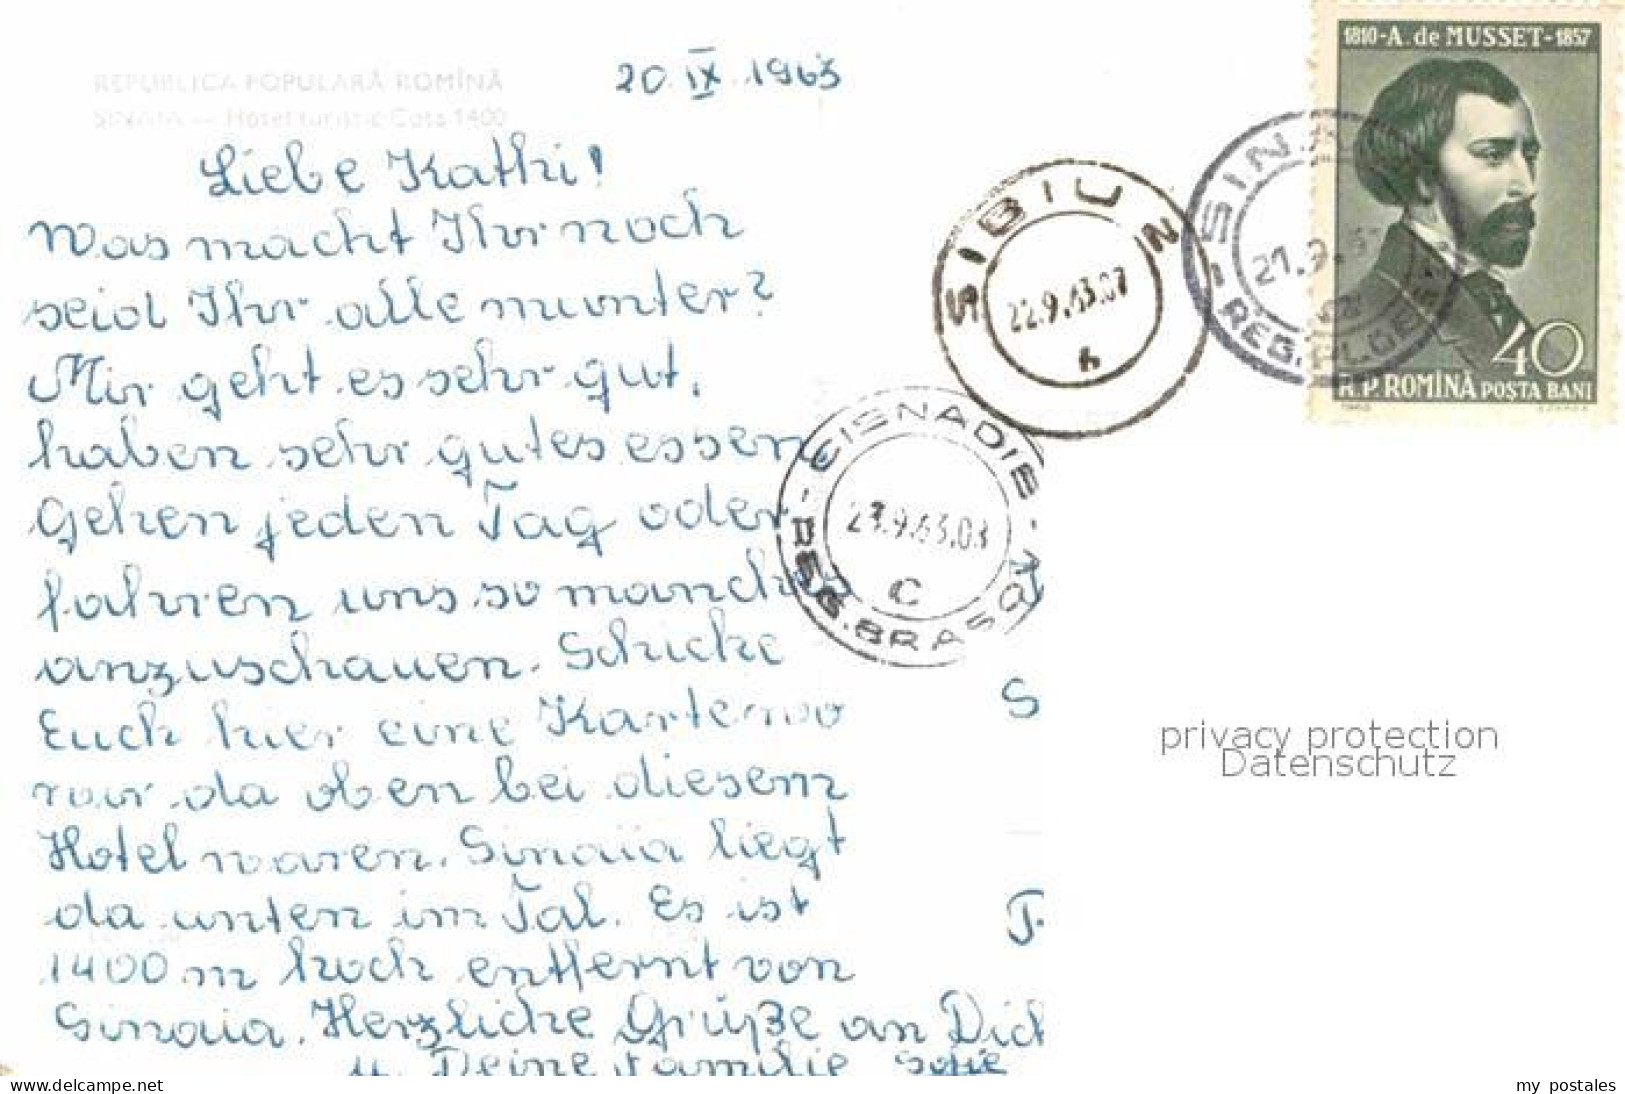 REPUBLICA POPULARĂ ROMÎNĂ
SINAIA — Hotel turistic Cota 1400
20 IX 1963
Liebe Kathi!
Was macht Ihr noch
seid Ihr alle munter?
Mir geht es sehr gut,
haben sehr gutes essen
Gehen jeden Tag oder
fahren uns so manches
anzuschauen. Schicke
Euch hier eine Karte wo
wir da oben bei diesem
Hotel waren. Sinaia liegt
da unten im Tal. Es ist
1400 m hoch entfernt von
Sinaia. Herzliche Grüße an Dich
u. Deine Familie Sofie
1810-A. de MUSSET-1857
40
R.P. ROMÎNĂ POSTA BANI
SIBIU
22.9.63.07
h
SINAIA
21.9.63
REG. PLOEȘTI
CISNADIE
23.9.63.08
C
REG. BRASOV
S
T.
privacy protection
Datenschutz
www.delcampe.net
my_postales